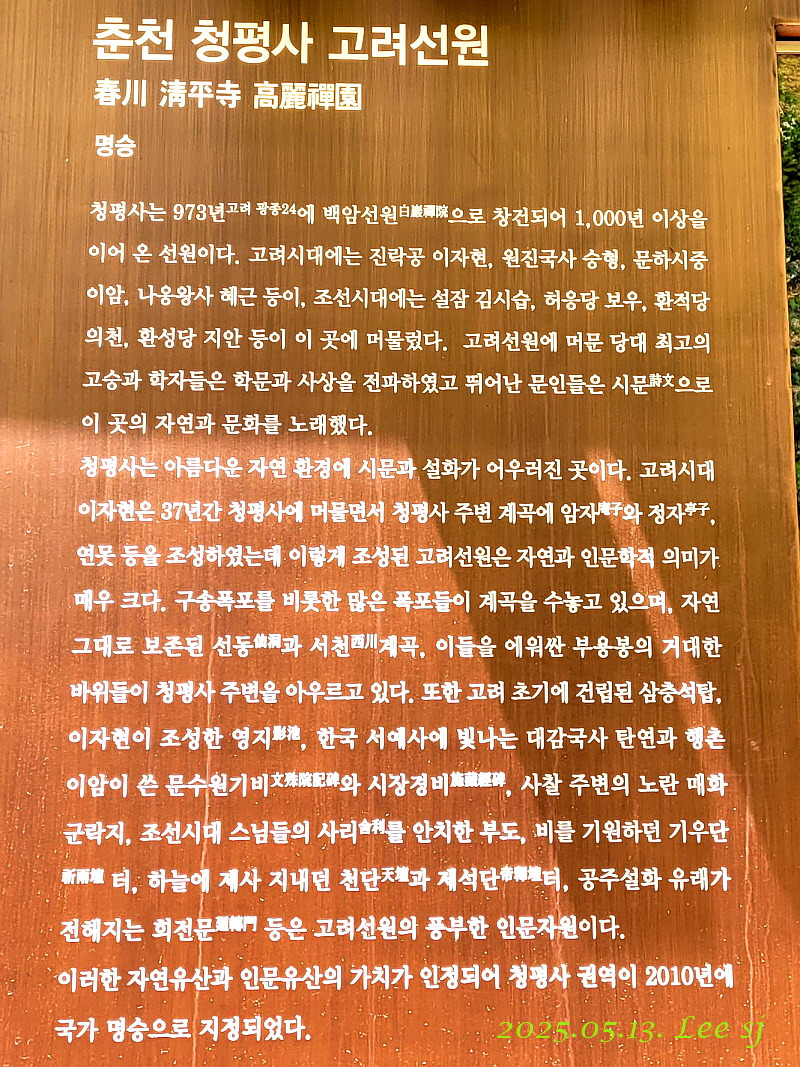 춘천 청평사 고려선원
春川 淸平寺 高麗禪園
명승
청평사는 973년고려 광종24에 백암선원白巖禪院으로 창건되어 1,000년 이상을
이어 온 선원이다. 고려시대에는 진락공 이자현, 원진국사 승형, 문하시중
이암, 나옹왕사 혜근 등이, 조선시대에는 설잠 김시습, 허응당 보우, 환적당
의천, 환성당 지안 등이 이 곳에 머물렀다. 고려선원에 머문 당대 최고의
고승과 학자들은 학문과 사상을 전파하였고 뛰어난 문인들은 시문詩文으로
이 곳의 자연과 문화를 노래했다.
청평사는 아름다운 자연 환경에 시문과 설화가 어우러진 곳이다. 고려시대
이자현은 37년간 청평사에 머물면서 청평사 주변 계곡에 암자庵子와 정자亭子,
연못 등을 조성하였는데 이렇게 조성된 고려선원은 자연과 인문학적 의미가
매우 크다. 구송폭포를 비롯한 많은 폭포들이 계곡을 수놓고 있으며, 자연
그대로 보존된 선동仙洞과 서천西川계곡, 이들을 에워싼 부용봉의 거대한
바위들이 청평사 주변을 아우르고 있다. 또한 고려 초기에 건립된 삼층석탑,
이자현이 조성한 영지影池, 한국 서예사에 빛나는 대감국사 탄연과 행촌
이암이 쓴 문수원기비文殊院記碑와 시장경비施藏經碑, 사찰 주변의 노란 매화
군락지, 조선시대 스님들의 사리舍利를 안치한 부도, 비를 기원하던 기우단
祈雨壇 터, 하늘에 제사 지내던 천단天壇과 제석단帝釋壇터, 공주설화 유래가
전해지는 회전문廻轉門 등은 고려선원의 풍부한 인문자원이다.
이러한 자연유산과 인문유산의 가치가 인정되어 청평사 권역이 2010년에
국가 명승으로 지정되었다.
2025.05.13. Lee sj